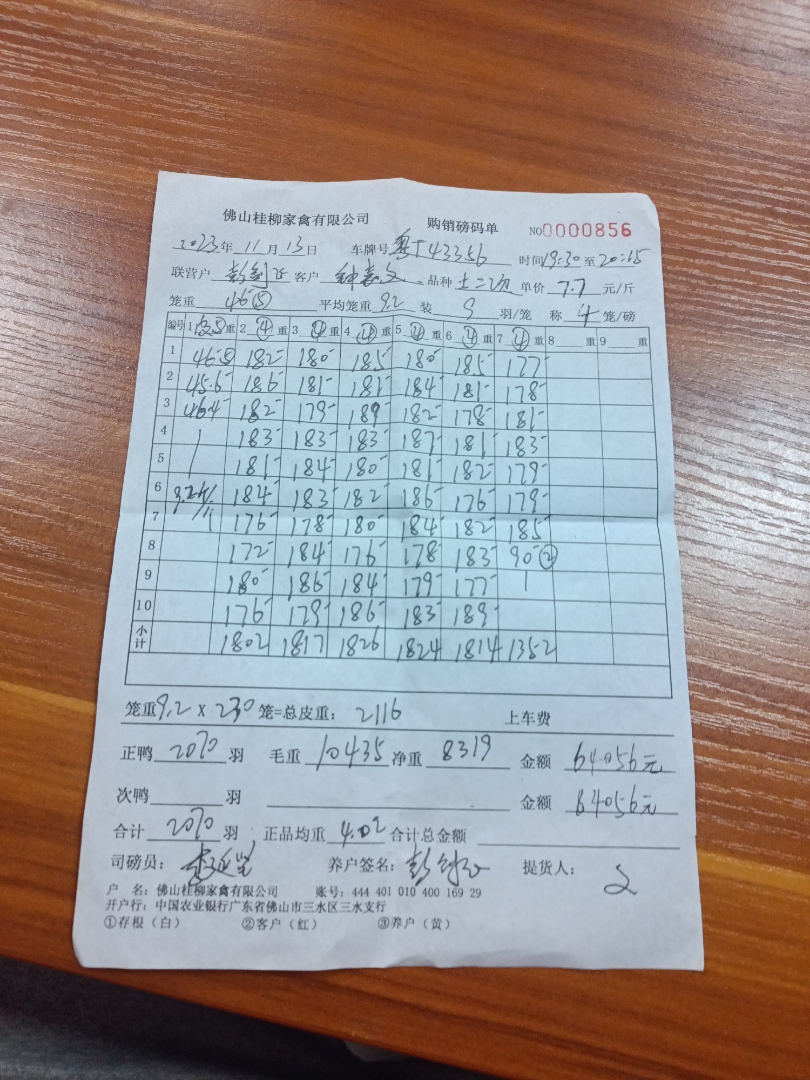 佛山桂柳家禽有限公司 购销磅码单 NO0000856
2023年 11月 13日 车牌号 粤T43356 时间19:30至20:15
联营户 彭剑飞 客户 品种 单价 7.7 元/斤
笼重 46⑤ 平均笼重 9.2 装 9 羽/笼 称 4 笼/磅
编号 1 ⑤ 重 2 ④ 重 3 ④ 重 4 ④ 重 5 ④ 重 6 ④ 重 7 ④ 重 8 重 9 重
1 46 182 180 185 180 185 177
2 45.6 186 181 181 184 181 178
3 46.4 182 179 189 182 178 181
4 183 183 183 187 181 183
5 181 184 180 181 182 179
6 9.2斤/ 184 183 182 186 176 179
7 176 178 180 184 182 185
8 172 184 176 178 183 90②
9 180 186 184 179 177
10 176 179 186 183 189
小计 1802 1817 1826 1824 1814 1352
笼重9.2 X 230 笼=总皮重: 2116 上车费
正鸭 2070 羽 毛重 10435 净重 8319 金额 64056元
次鸭 羽 金额 64056元
合计 2070 羽 正品均重 4.02 合计总金额
司磅员: 养户签名: 提货人: 文
户 名: 佛山桂柳家禽有限公司 账号: 444 401 010 400 169 29
开户行: 中国农业银行广东省佛山市三水区三水支行
①存根(白) ②客户(红) ③养户(黄)